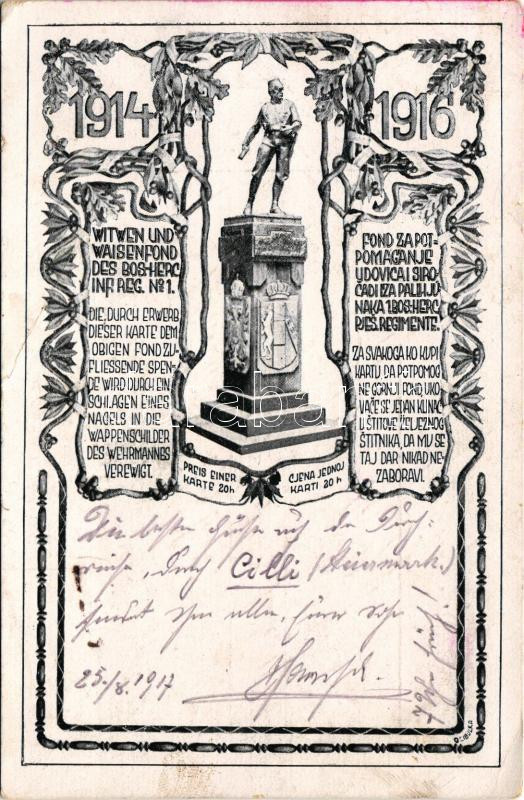 1914
1916
WITWEN UND
WAISENFOND
DES BOS.HERC.
INF. REG. № 1.
DIE, DURCH ERWERB
DIESER KARTE DEM
OBIGEN FOND ZU-
FLIESSENDE SPEN-
DE WIRD DURCH EIN-
SCHLAGEN EINES
NAGELS IN DIE
WAPPENSCHILDER
DES WEHRMANNES
VEREWIGT.
FOND ZA POT-
POMAGANJE
UDOVICA I SIRO-
ČADI IZA PALIH JU-
NAKA 1. BOS.HERC.
PJEŠ. REGIMENTE.
ZA SVAKOGA KO KUPI
KARTU, DA POTPOMOG-
NE GORNJI FOND, UKO-
VAČE SE JEDAN KLINAC
U ŠTITOVE ŽELJEZNOG
ŠTITNIKA, DA MU SE
TAJ DAR NIKAD NE
ZABORAVI.
PREIS EINER
KARTE 20 h
CJENA JEDNOJ
KARTI 20 h
Die besten Grüße auf der Durch-
reise, durch Cilli (Steiermark.)
sendet Ihnen allen, Euer
25./8. 1917
7 Uhr früh!